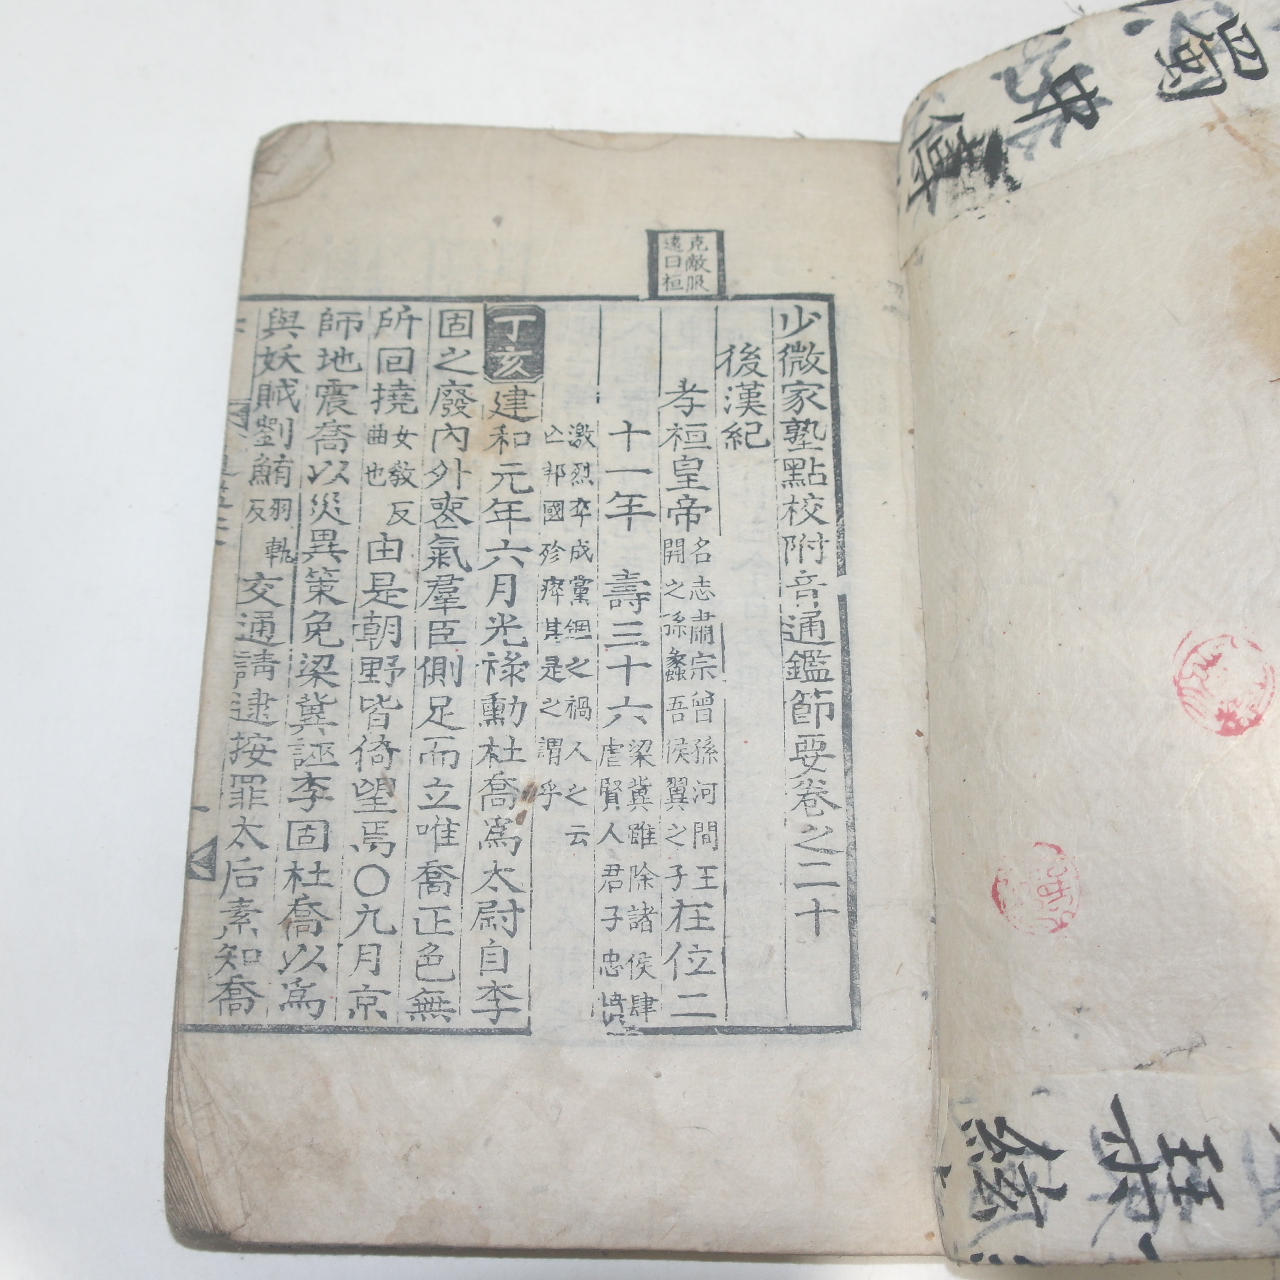 克敵服
遠曰桓
少微家塾點校附音通鑑節要卷之二十
後漢紀
孝桓皇帝
名志肅宗曾孫河間王
開之孫蠡吾侯翼之子
在位二
十一年 壽三十六
梁冀雖除諸侯肆
虐賢人君子忠憤
激烈卒成黨錮之禍人之云
亡邦國殄瘁其是之謂乎
丁亥建和元年六月光祿勳杜喬爲太尉自李
固之廢內外喪氣羣臣側足而立唯喬正色無
所回撓
女敎反
曲也
由是朝野皆倚望焉○九月京
師地震喬以災異策免梁冀誣李固杜喬以爲
與妖賊劉鮪
羽軌
反
交通請逮按罪太后素知喬